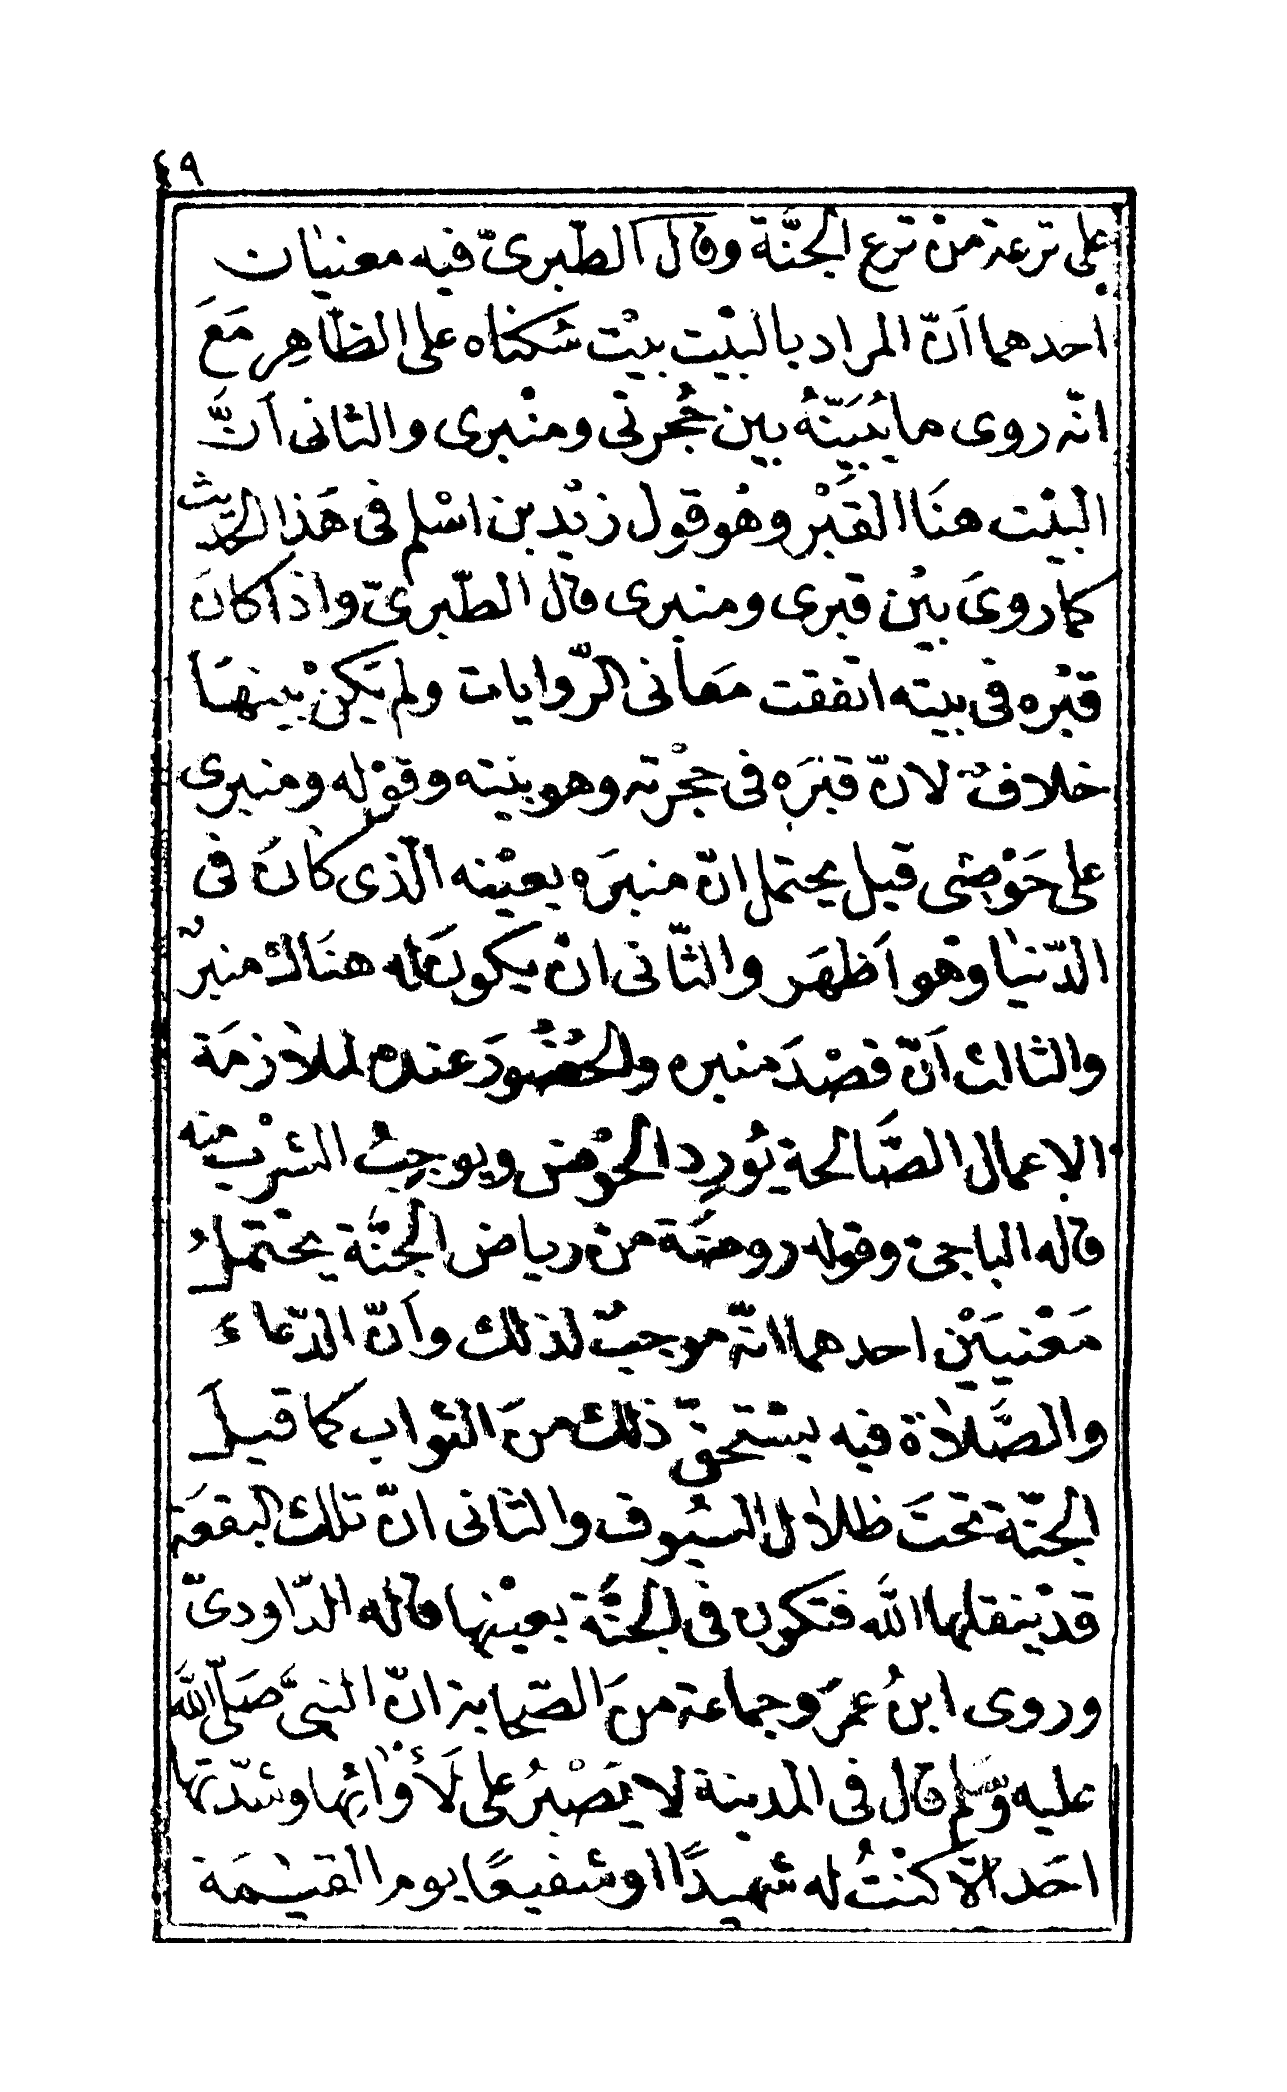 ٤٩
على ترعة من ترع الجنّة وقال الطبرىّ فيه معنيان
احدهما انّ المراد بالبيت بيت سكناه على الظاهر مَعَ
انّه روى ما يُبَيّنُهُ بين حُجرتى ومنبرى والثانى اَنَّ
البيْت هنَا القَبْر وهُو قول زيْد بن اسْلم فى هَذا الحديث
كما روىَ بيْن قبرى ومنبرى قال الطّبرىّ واذا كانَ
قبْره فى بيته اتفقت مَعانى الرّوايات ولم يَكنْ بينهمَا
خلافٌ لانّ قبرَه فى حجْرته وهو بيته وقوْله ومنبرى
على حَوْضى قيل يحتمل انّ منبرَه بعيْنه الّذى كانَ فى
الدّنيا وهو اَظهَر والثّانى انْ يكونَ له هنَاك منبرٌ
والثالث اَنّ قصْدَ منبره والحضُورَ عنده لملازمَة
الاعمال الصَّالحة يُورِد الحَوْض ويوجبُ الشرْب منه
قاله الباجى وقوله روضَة من رياض الجنَّة يحْتملُ
مَعْنيَيْن احدهما انّه موجبٌ لذلك واَنّ الدّعاءَ
والصَّلاة فيه يسْتحقّ ذلك منَ الثواب كما قيلَ
الجنّة تحتَ ظلال السُيوف والثانى انّ تلك البقعَة
قد ينقلها الله فتكون فى الجنَّة بعيْنها قاله الدّاودىّ
وروى ابنُ عمَر وجماعة منَ الصّحابة انّ النبىَّ صَلّى الله
عليه وَسّلم قال فى المدينة لا يَصْبرُ على لَأْوَائِها وشدّتها
احَد الّا كنْتُ له شهيدًا او شفيعًا يوم القيٰمَة